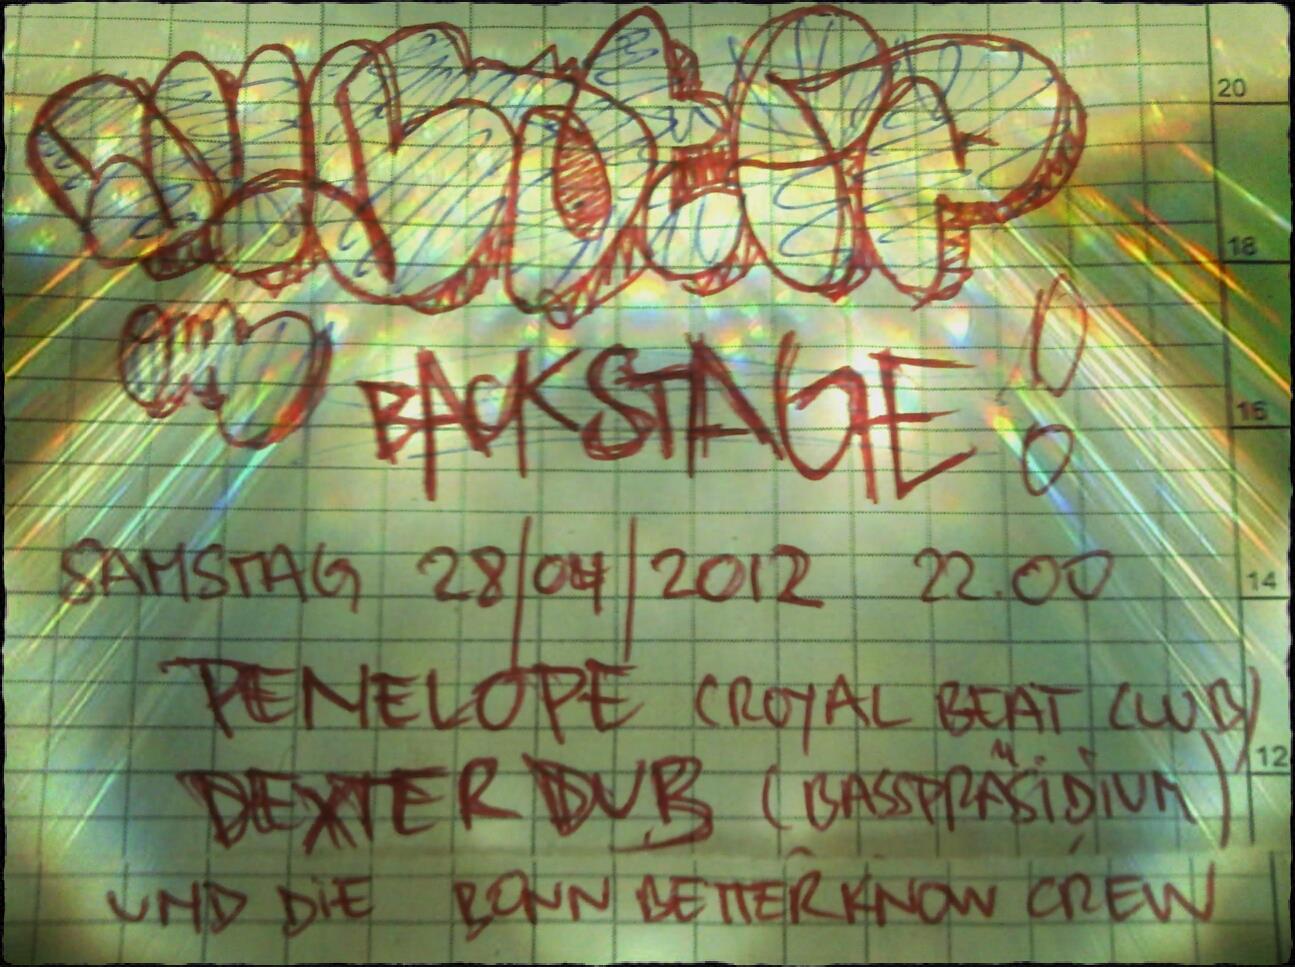 20
18
IM
BACKSTAGE!
16
SAMSTAG 28/04/2012 22.00
14
PENELOPE (ROYAL BEAT CLUB)
12
DEXTER DUB (BASSPRÄSiDiUM)
UND DiE BONN BETTERKNOW CREW